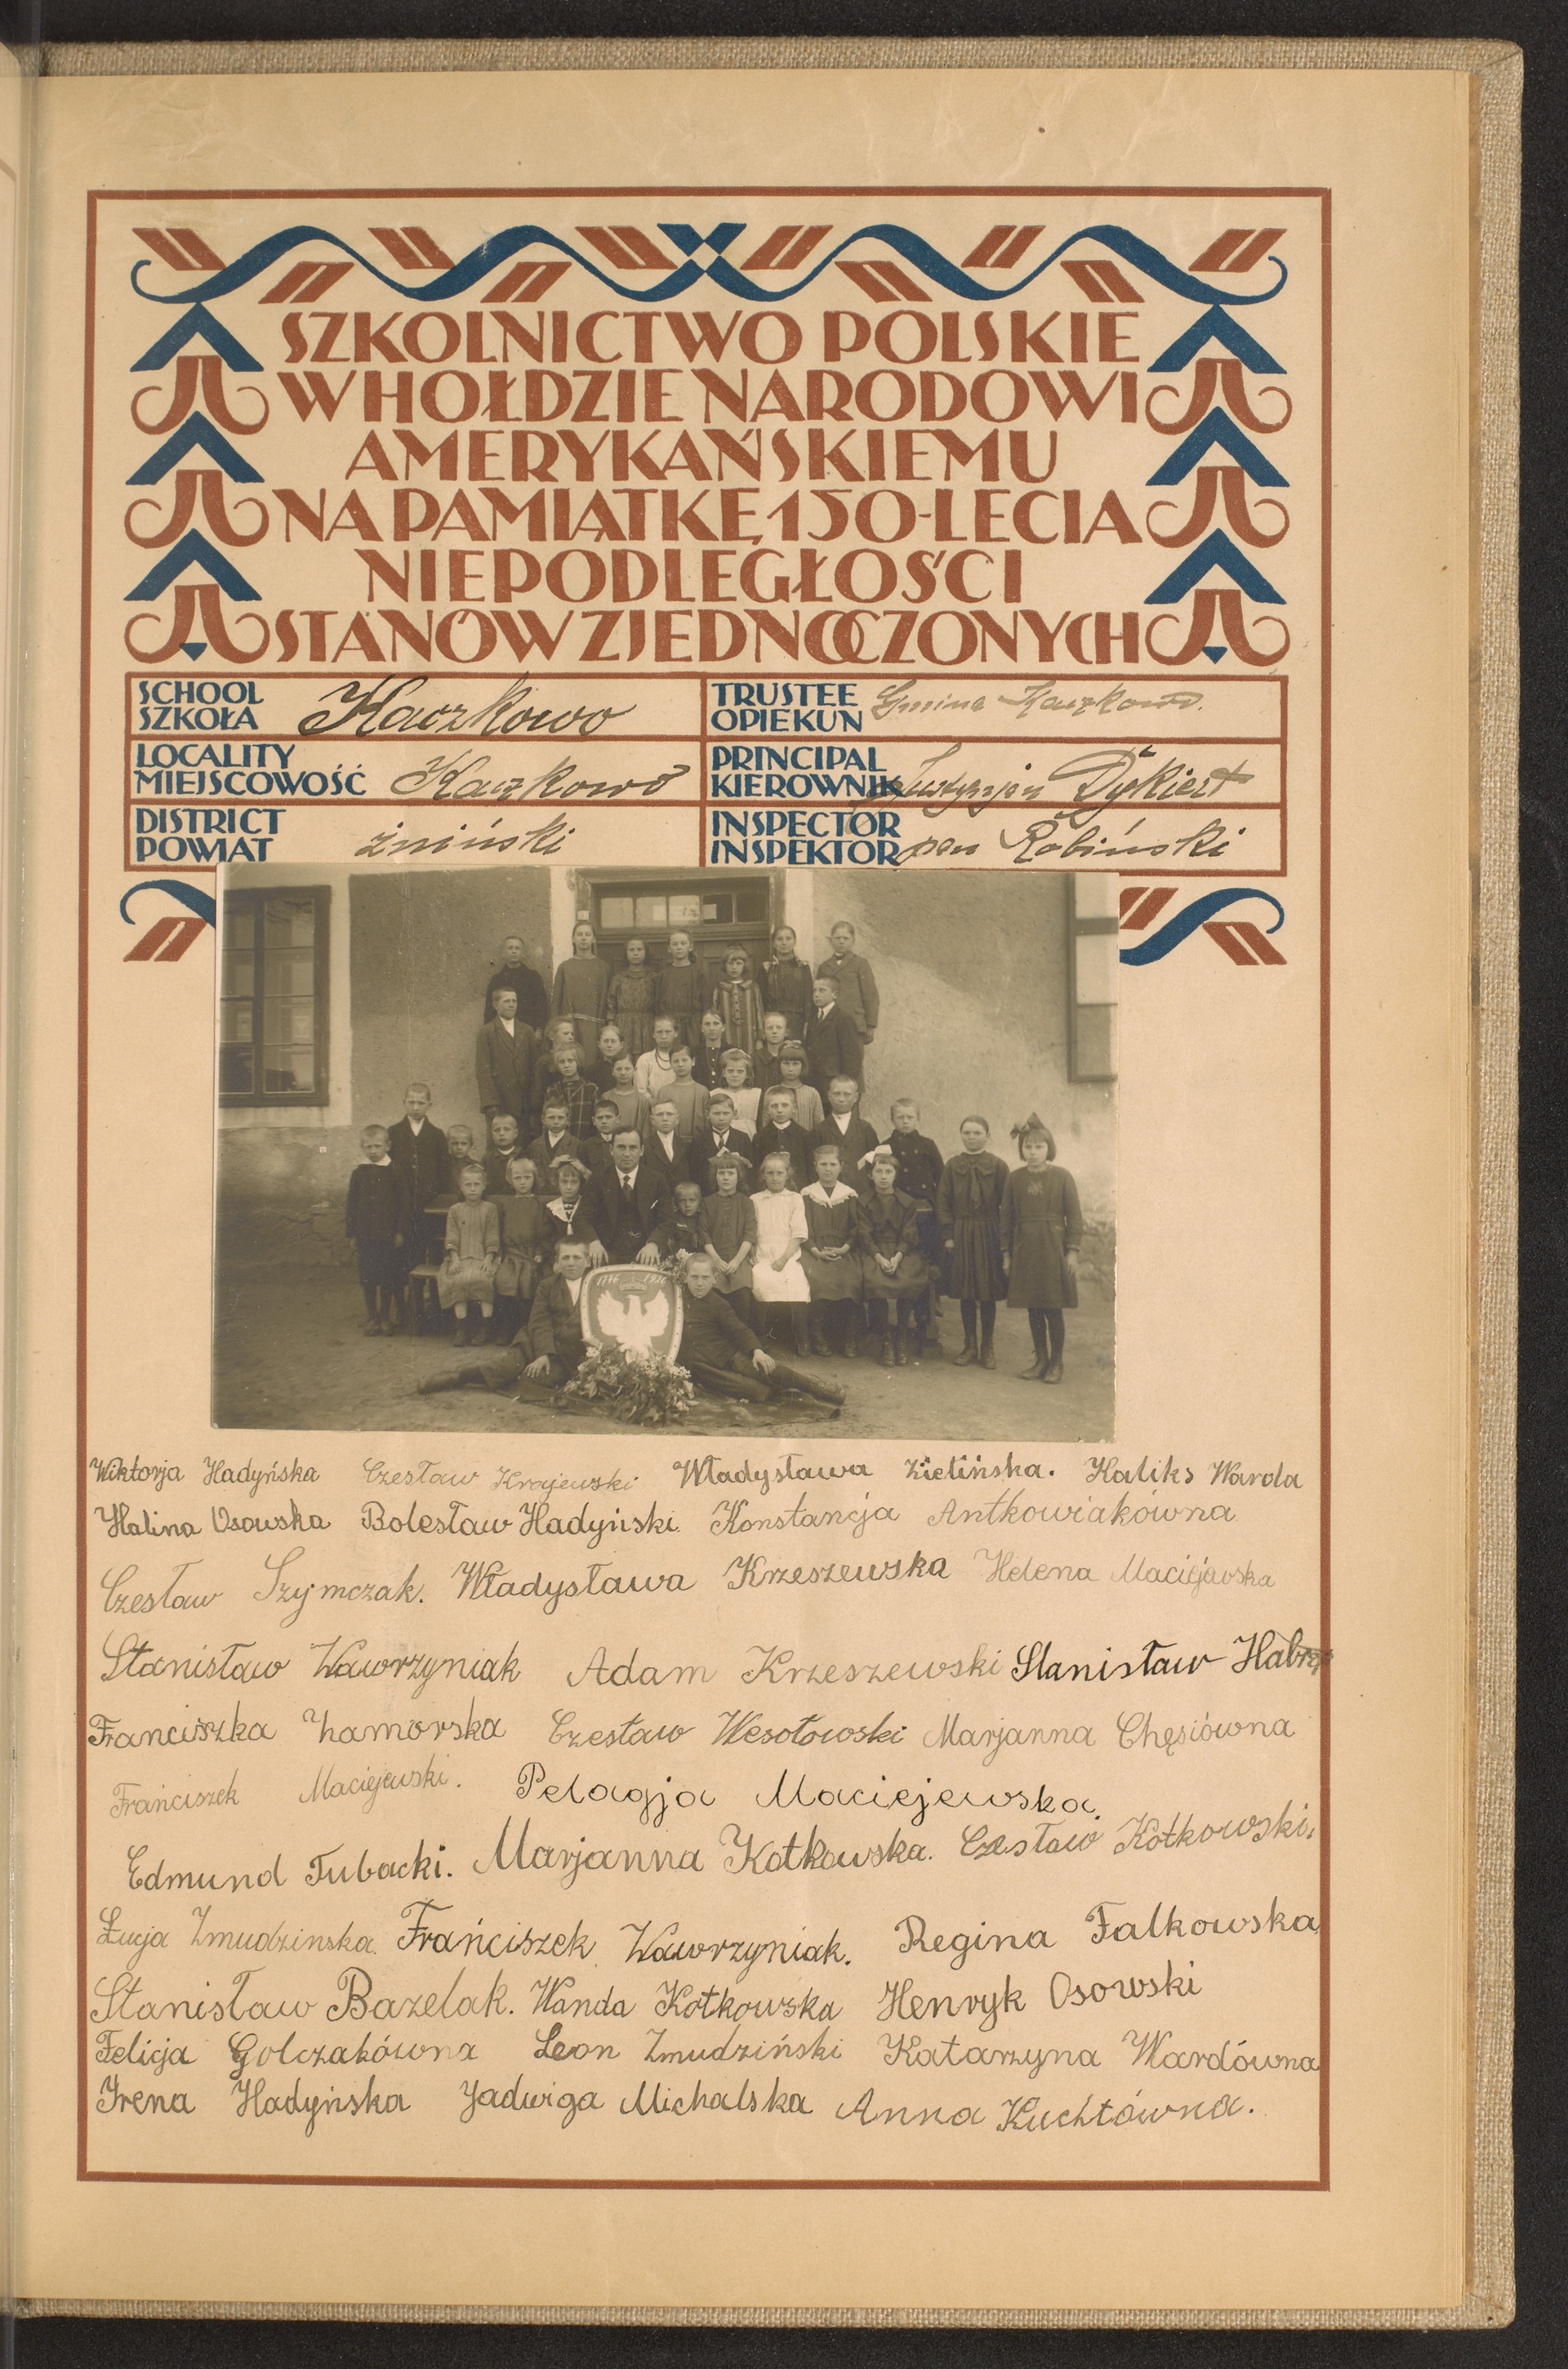 SZKOLNICTWO POLSKIE
W HOŁDZIE NARODOWI
AMERYKAŃSKIEMU
NA PAMIĄTKĘ 150-LECIA
NIEPODLEGŁOŚCI
STANÓW ZJEDNOCZONYCH
SCHOOL
SZKOŁA Kaczkowo
TRUSTEE
OPIEKUN Gmina Kaczkowo.
LOCALITY
MIEJSCOWOŚĆ Kaczkowo
PRINCIPAL
KIEROWNIK Dykiert
DISTRICT
POWIAT żniński
INSPECTOR
INSPEKTOR pan Robiński
1776 1926
Wiktorja Hadyńska Czesław Krajewski Władysława Zielińska. Kaliks Warda
Halina Osowska Bolesław Hadyński. Konstancja Antkowiakówna
Czesław Szymczak. Władysława Krzeszewska Helena Maciejewska
Stanisław Wawrzyniak Adam Krzeszewski Stanisław
Franciszka Zamorska Czesław Wesołowski Marjanna Chęsiówna
Franciszek Maciejewski. Pelagja Maciejewska.
Edmund Tubacki. Marjanna Kotkowska. Czesław Kotkowski.
Łucja Zmudzinska. Franciszek Wawrzyniak. Regina Falkowska
Stanisław Bazelak. Wanda Kotkowska Henryk Osowski
Felicja Golczakówna Leon Zmudziński Katarzyna Wardówna
Irena Hadyńska Jadwiga Michalska Anna Kuchtówna.